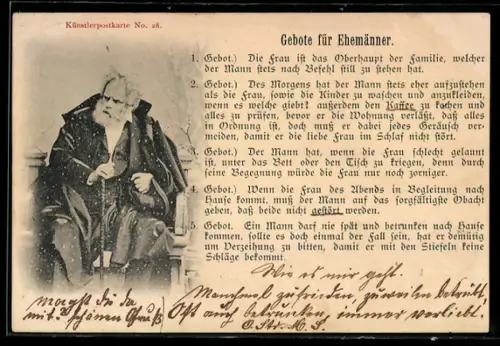 Künstlerpostkarte No. 28.
Gebote für Ehemänner.
1. Gebot.) Die Frau ist das Oberhaupt der Familie, welcher
der Mann stets nach Befehl still zu stehen hat.
2. Gebot.) Des Morgens hat der Mann stets eher aufzustehen
als die Frau, sowie die Kinder zu waschen und anzukleiden,
wenn es welche giebt; außerdem den Kaffee zu kochen und
alles zu prüfen, bevor er die Wohnung verläßt, daß alles
in Ordnung ist, doch muß er dabei jedes Geräusch ver-
meiden, damit er die liebe Frau im Schlaf nicht stört.
3. Gebot.) Der Mann hat, wenn die Frau schlecht gelaunt
ist, unter das Bett oder den Tisch zu kriegen, denn durch
seine Begegnung würde die Frau nur noch zorniger.
4. Gebot.) Wenn die Frau des Abends in Begleitung nach
Hause kommt, muß der Mann auf das sorgfältigste Obacht
geben, daß beide nicht gestört werden.
5. Gebot. Ein Mann darf nie spät und betrunken nach Hause
kommen, sollte es doch einmal der Fall sein, hat er demütig
um Verzeihung zu bitten, damit er mit den Stiefeln keine
Schläge bekommt.
Wie es mir geht.
Manchmal zufrieden, zuweilen betrübt,
Oft auch betrunken, immer verliebt.
magst du da
mit. schönen Gruß